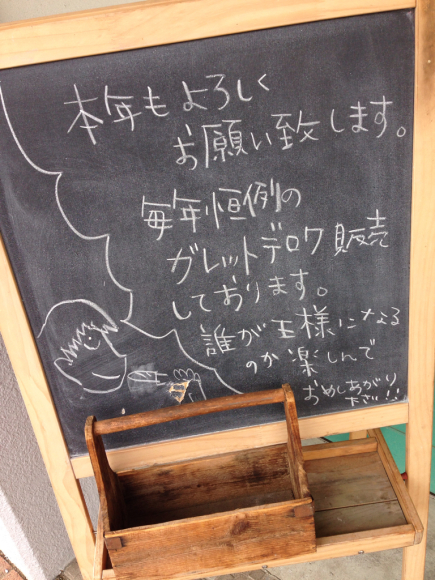 本年もよろしく
お願い致します。
毎年恒例の
ガレットデロワ販売
しております。
誰が王様になる
のか楽しんで
おめしあがり
下さい!!